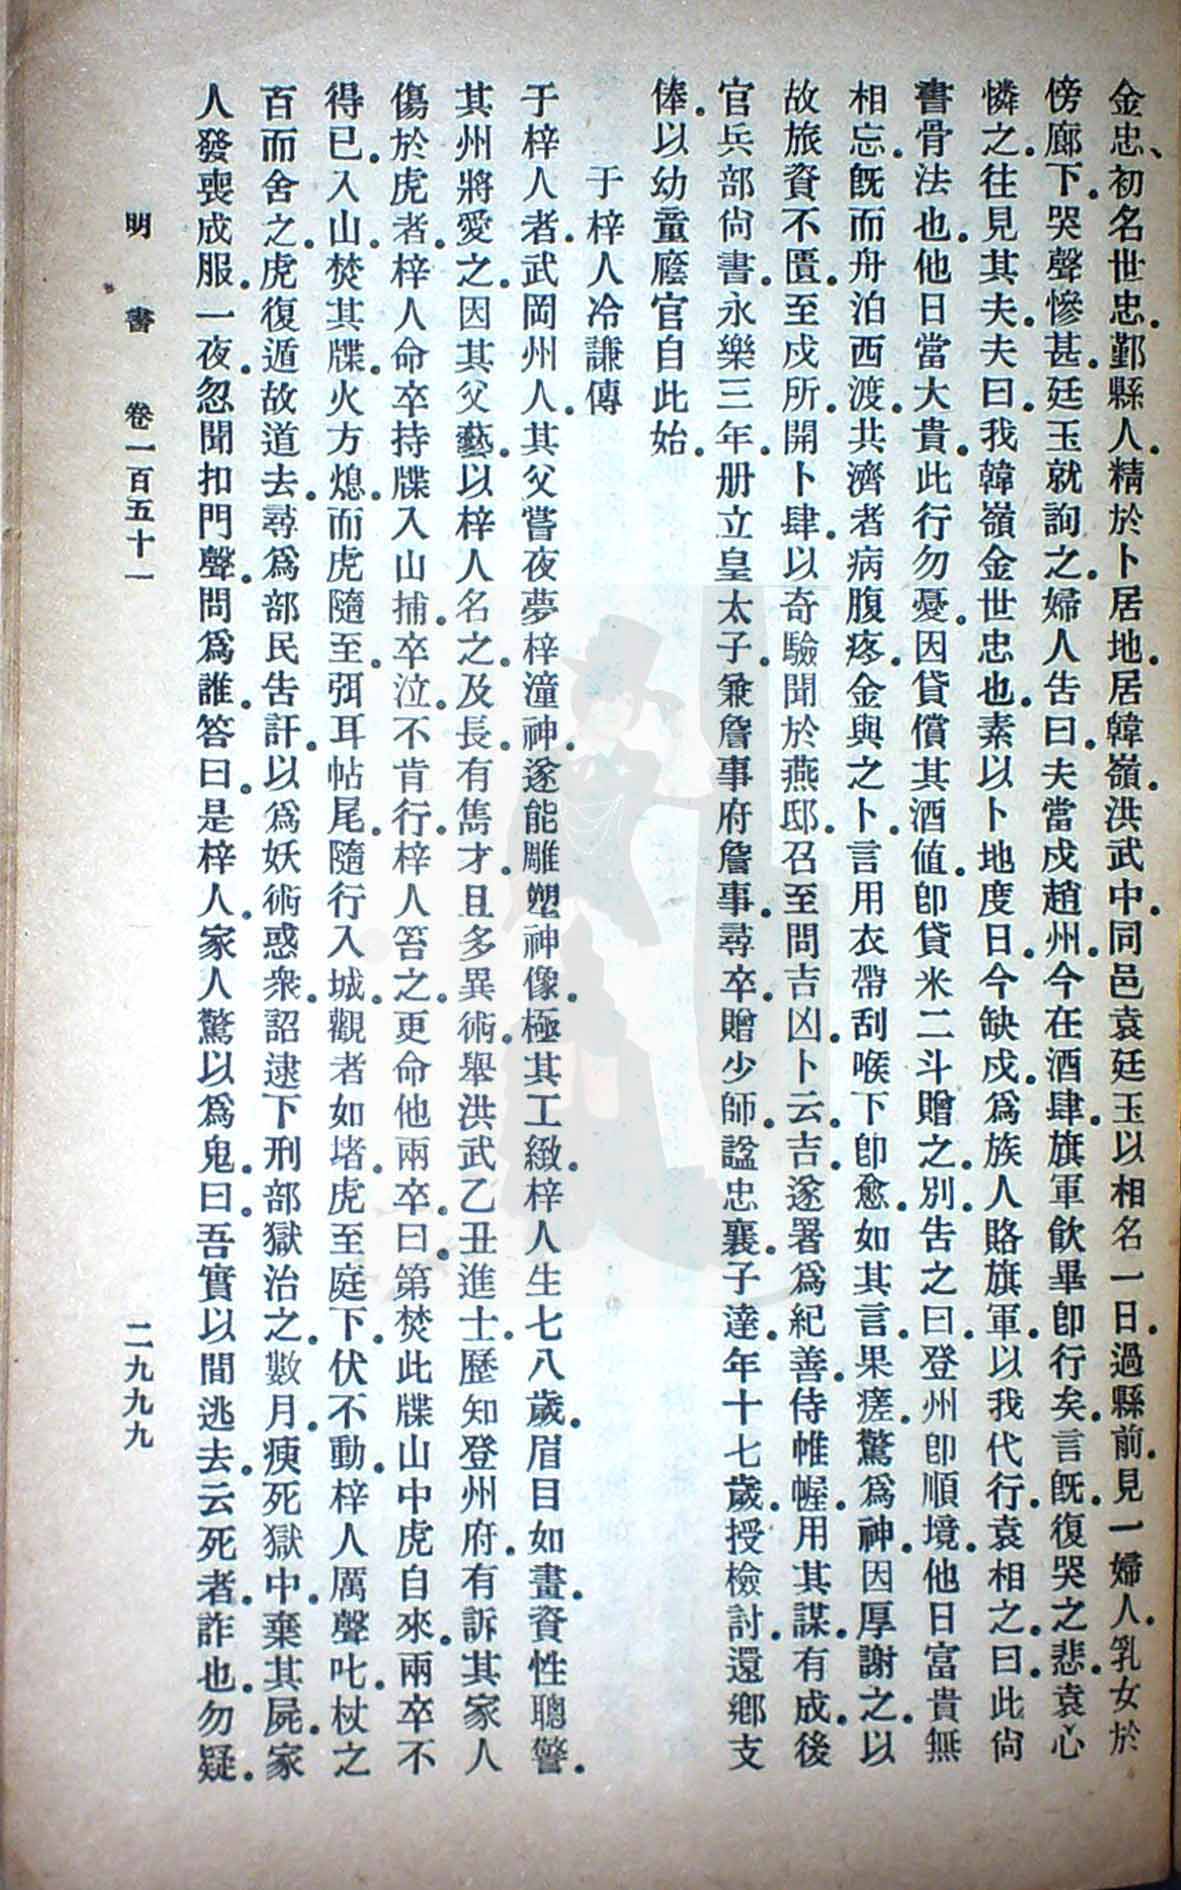 金忠、初名世忠．鄞縣人．精於卜居地．居韓嶺．洪武中．同邑袁廷玉以相名．一日過縣前．見一婦人．乳女於
傍廊下．哭聲慘甚．廷玉就詢之．婦人告曰．夫當戍趙州．今在酒肆．旗軍飲畢卽行矣．言旣．復哭之悲．袁心
憐之．往見其夫．夫曰．我韓嶺金世忠也．素以卜地度日．今缺戍．爲族人賂旗軍．以我代行．袁相之曰．此尙
書骨法也．他日當大貴．此行勿憂．因貸償其酒値．卽貸米二斗贈之．別．告之曰．登州卽順境．他日富貴無
相忘．旣而舟泊西渡．共濟者病腹疼．金與之卜．言用衣帶刮喉下卽愈．如其言．果瘥．驚爲神．因厚謝之．以
故旅資不匱．至戍所．開卜肆．以奇驗聞於燕邸．召至問吉凶．卜云．吉．遂署爲紀善．侍帷幄．用其謀．有成．後
官兵部尙書．永樂三年．册立皇太子．兼詹事府詹事．尋卒．贈少師．諡忠襄．子達．年十七歲．授檢討．還鄉支
俸．以幼童廕官自此始．
于梓人冷謙傳
于梓人者．武岡州人．其父嘗夜夢梓潼神．遂能雕塑神像．極其工緻．梓人生七八歲．眉目如畫．資性聰警．
其州將愛之．因其父藝．以梓人名之．及長．有雋才．且多異術．舉洪武乙丑進士．歷知登州府．有訴其家人
傷於虎者．梓人命卒持牒入山捕．卒泣．不肯行．梓人笞之．更命他兩卒．曰．第焚此牒山中．虎自來．兩卒不
得已．入山．焚其牒．火方熄．而虎隨至．弭耳帖尾．隨行入城．觀者如堵．虎至庭下．伏不動．梓人厲聲叱．杖之
百而舍之．虎復遁故道去．尋爲部民告訐．以爲妖術惑衆．詔逮下刑部獄治之．數月．瘐死獄中．棄其屍．家
人發喪成服．一夜．忽聞扣門聲．問爲誰．答曰．是梓人．家人驚以爲鬼．曰．吾實以間逃去．云死者．詐也．勿疑．
明書　卷一百五十一　二九九九